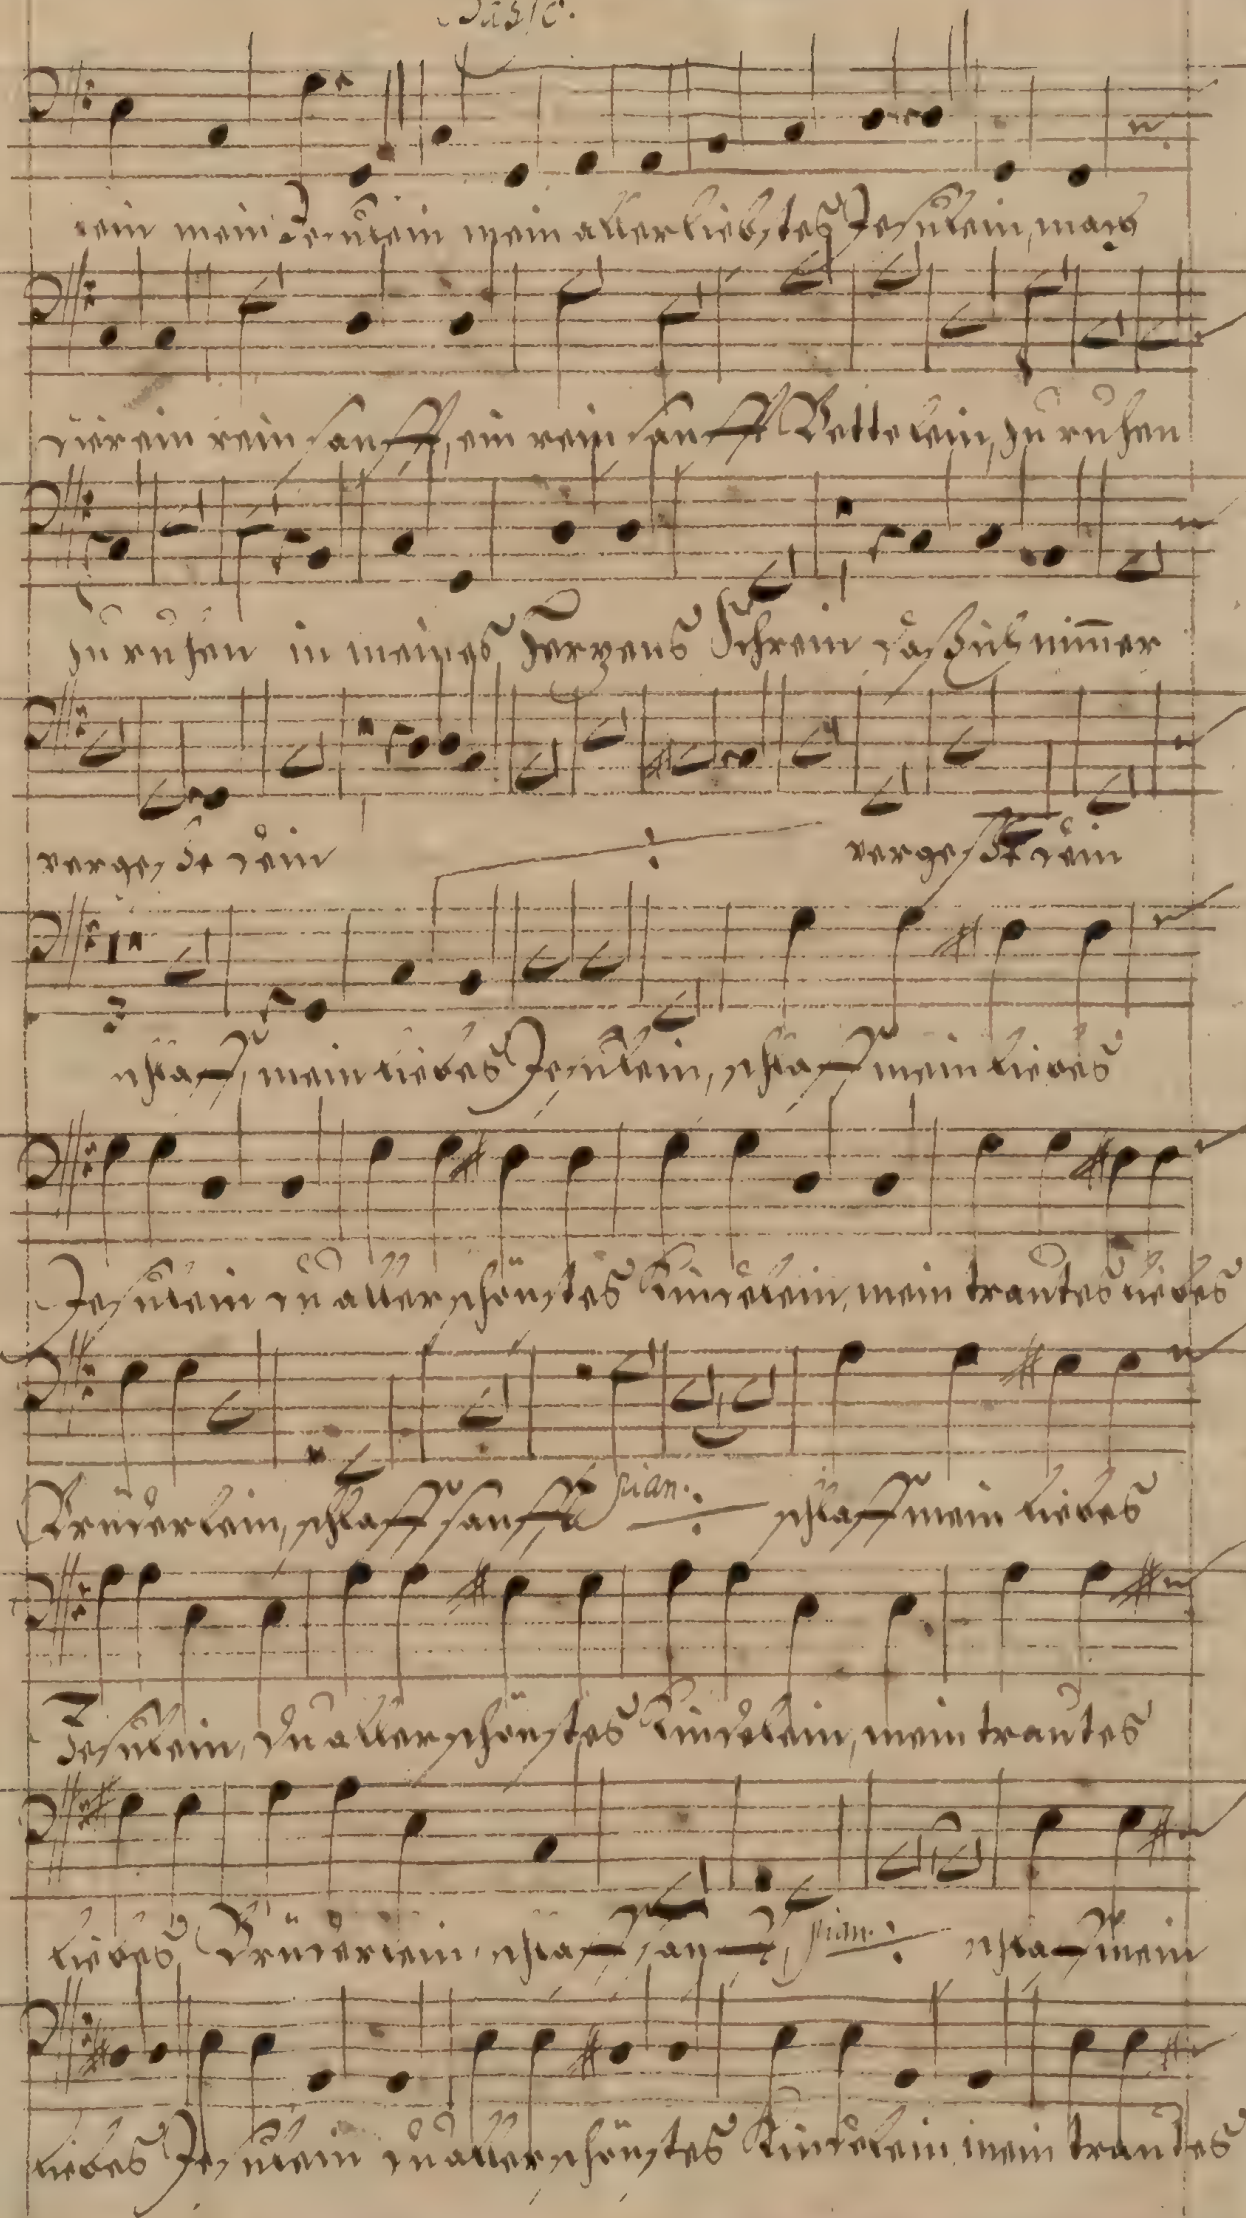 Basso.
dein mein Jesulein mein allerliebstes Jesulein, mach
dier ein rein sanfft, ein rein sanfft Bettelein, zu ruhen
zu ruhen in meines Hertzens Schrein daß ich nimmer
vergeße dein vergeße dein
schlaff, mein liebes Jesulein, schlaff mein liebes
Jesulein du allerschönstes Kindelein, mein trautes liebes
Brüderlein, schlaff sanfft pian. schlaff mein liebes
Jesulein, du allerschönstes Kindelein, mein trautes
liebes Brüderlein, schlaff sanfft, pian. schlaff mein
liebes Jesulein du allerschönstes Kindelein mein trautes